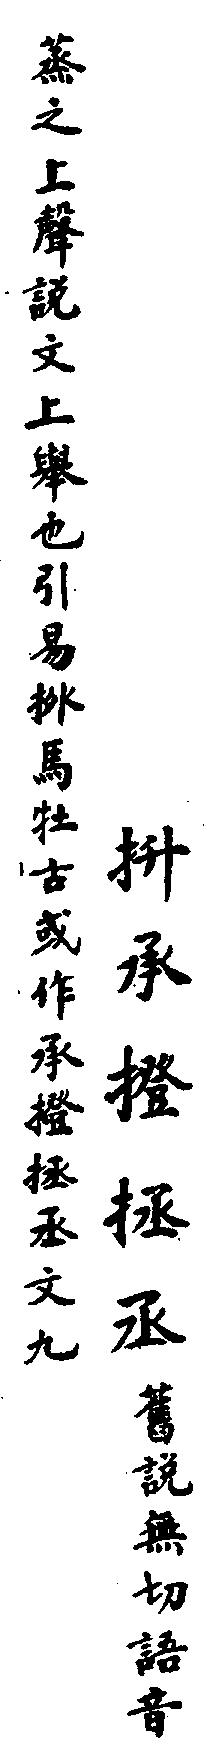 抍承撜拯丞舊說無切語音
蒸之上聲說文上舉也引易抍馬牡古或作承撜拯丞文九